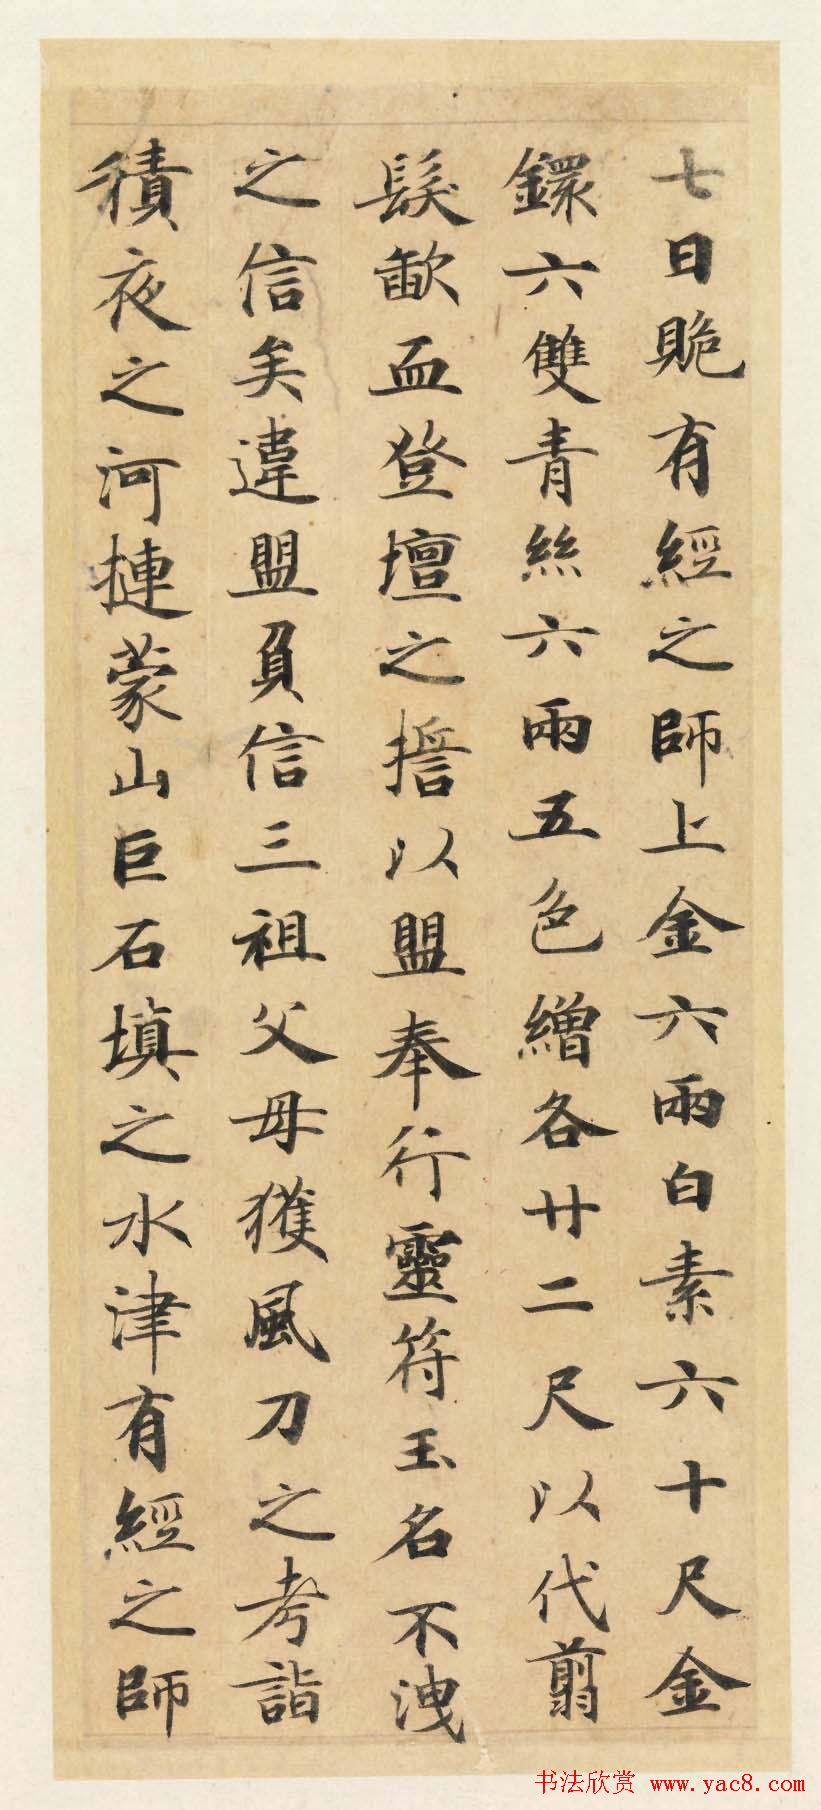 七日跪有經之師上金六兩白素六十尺金
鐶六雙青絲六兩五色繒各廿二尺以代翦
髮歃血登壇之擔以盟奉行靈符玉名不洩
之信矣違盟負信三祖父母獲風刀之考詣
積夜之河摙蒙山巨石填之水津有經之師
书法欣赏 www.yac8.com